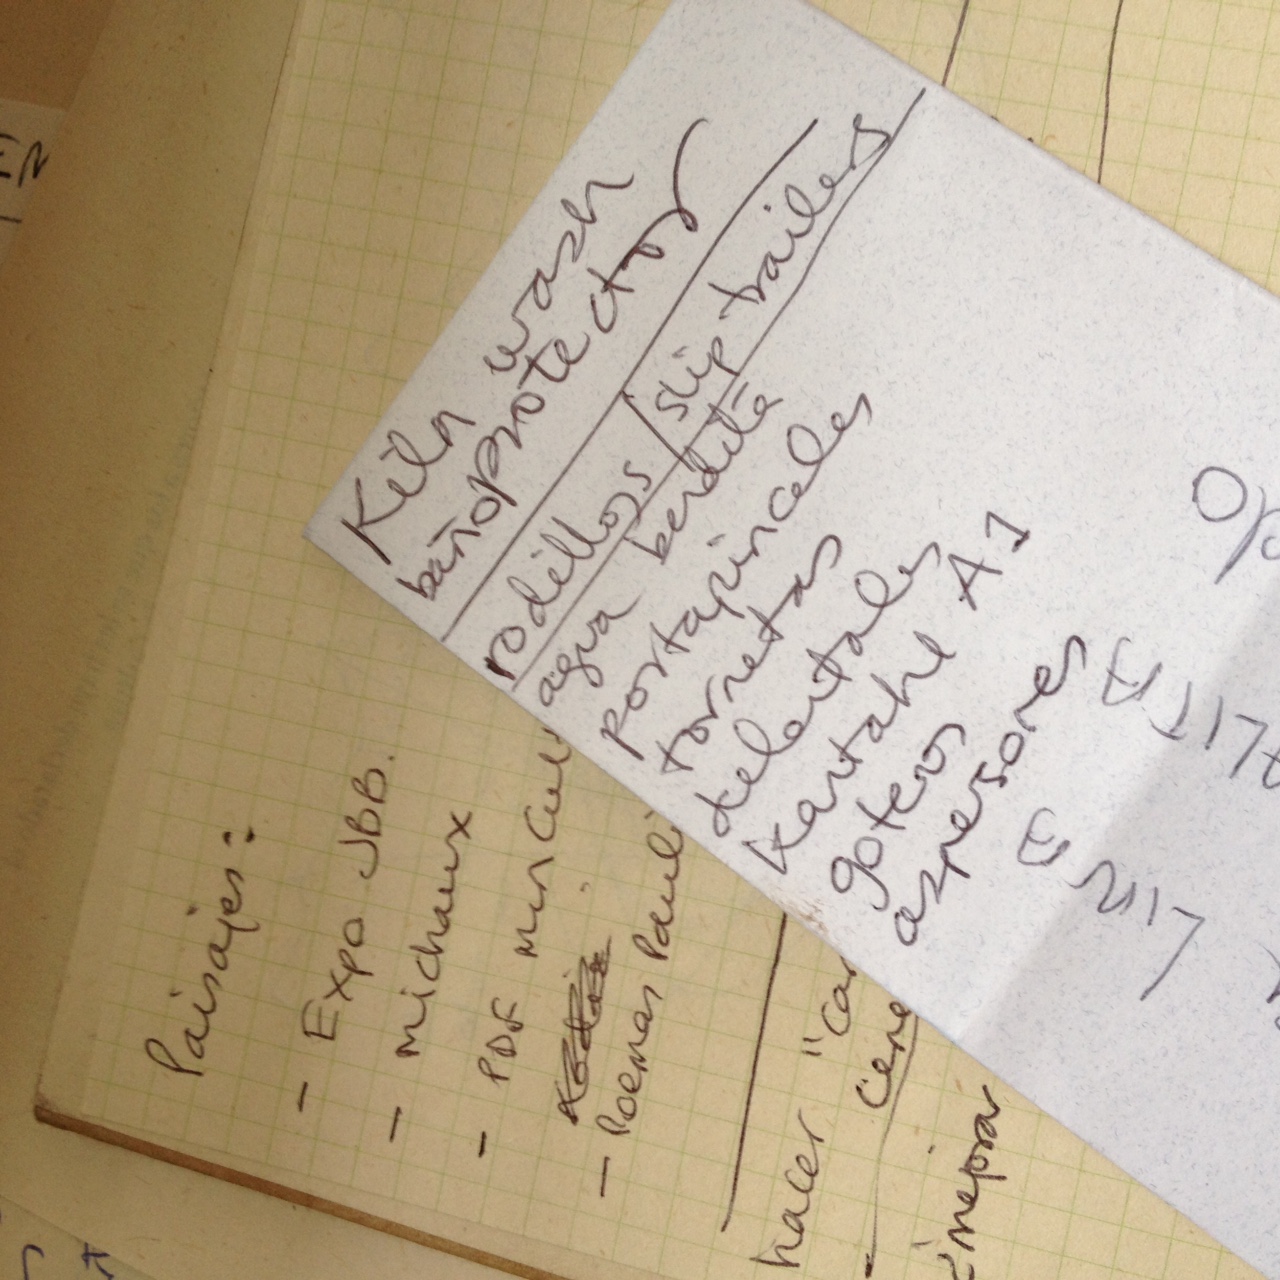 Kiln wash
bañoprotector
rodillos / slip trailers
agua bendita
portapinceles
tornetas
delantales
kantahl A1
goteros
aspersores
Paisajes:
- Expo JBB.
- michaux
- PDF min cul
- Poemas Paul
hacer "car
- cere